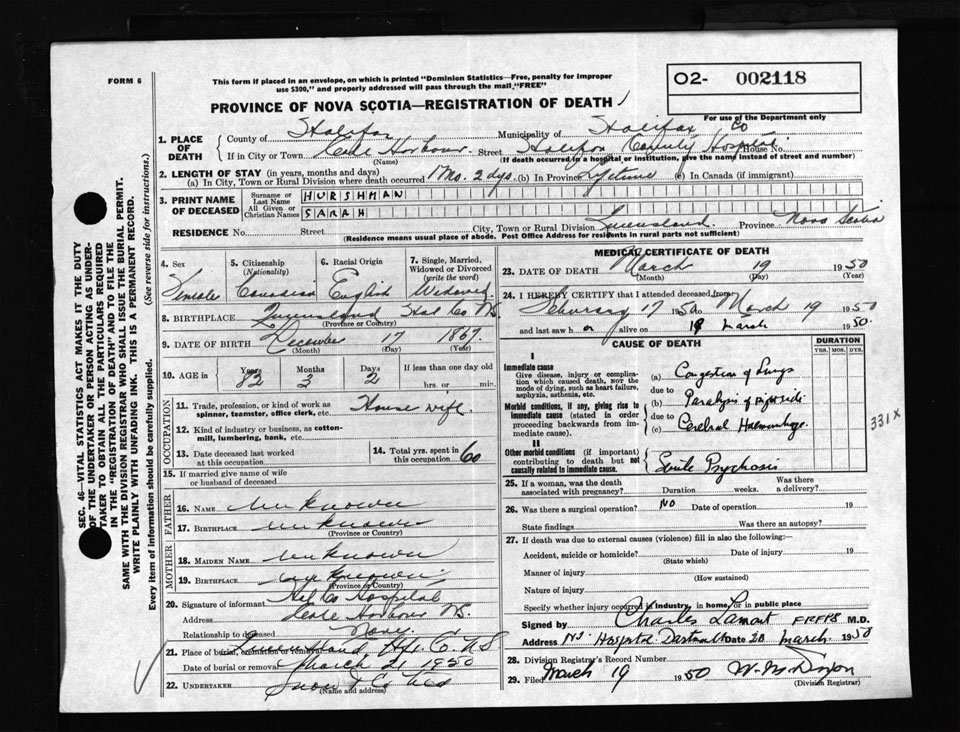 FORM 6
This form if placed in an envelope, on which is printed "Dominion Statistics—Free, penalty for improper
use $300," and properly addressed will pass through the mail, "FREE"
O2- 002118
For use of the Department only
PROVINCE OF NOVA SCOTIA—REGISTRATION OF DEATH
1. PLACE OF DEATH
County of Halifax Municipality of Halifax Co
If in City or Town Cole Harbour Street Halifax County Hospital House No.
(Name) (If death occurred in a hospital or institution, give the name instead of street and number)
2. LENGTH OF STAY (in years, months and days)
(a) In City, Town or Rural Division where death occurred 1 Mo. 2 dys. (b) In Province Lifetime (c) In Canada (if immigrant)
3. PRINT NAME OF DECEASED
Surname or Last Name HURSHMAN
All Given or Christian Names SARAH
RESIDENCE No. Street City, Town or Rural Division Queensland Province Nova Scotia
(Residence means usual place of abode. Post Office Address for residents in rural parts not sufficient)
4. Sex Female
5. Citizenship (Nationality) Canadian
6. Racial Origin English
7. Single, Married, Widowed or Divorced (write the word) Widowed
8. BIRTHPLACE Queensland Hal Co NS
(Province or Country)
9. DATE OF BIRTH December 17 1867
(Month) (Day) (Year)
10. AGE in Years 82 Months 3 Days 2 If less than one day old
hrs. or min.
OCCUPATION
11. Trade, profession, or kind of work as
spinner, teamster, office clerk, etc. House wife
12. Kind of industry or business, as cotton-
mill, lumbering, bank, etc.
13. Date deceased last worked
at this occupation
14. Total yrs. spent in
this occupation 60
15. If married give name of wife
or husband of deceased
FATHER
16. NAME Unknown
17. BIRTHPLACE Unknown
(Province or Country)
MOTHER
18. MAIDEN NAME Unknown
19. BIRTHPLACE Unknown
(Province or Country)
20. Signature of informant Hal Co Hospital
Address Cole Harbour NS.
Relationship to deceased None
21. Place of burial, cremation or removal Queensland Hfx. Co. NS
Date of burial or removal March 21 1950
22. UNDERTAKER Snow & Co Ltd
(Name and address)
MEDICAL CERTIFICATE OF DEATH
23. DATE OF DEATH March 19 1950
(Month) (Day) (Year)
24. I HEREBY CERTIFY that I attended deceased from:
February 17 1950 to March 19 1950
and last saw h er alive on 19 March 1950.
CAUSE OF DEATH
DURATION
YRS. MOS. DYS.
I
Immediate cause
Give disease, injury or complica-
tion which caused death, NOT the
mode of dying, such as heart failure,
asphyxia, asthenia, etc.
(a) Congestion of Lungs
due to
Morbid conditions, if any, giving rise to
immediate cause (stated in order
proceeding backwards from im-
mediate cause).
(b) Paralysis of Rightside
due to
(c) Cerebral Haemorrhage
331X
II
Other morbid conditions (if important)
contributing to death but not
causally related to immediate cause.
Senile Psychosis
25. If a woman, was the death
associated with pregnancy? Duration weeks. Was there
a delivery?
26. Was there a surgical operation? NO Date of operation 19
State findings Was there an autopsy?
27. If death was due to external causes (violence) fill in also the following:—
Accident, suicide or homicide? Date of injury 19
(State which)
Manner of injury
(How sustained)
Nature of injury
Specify whether injury occurred in industry, in home, or in public place
Signed by Charles Lamont FRFPS M.D.
Address N.S. Hospital Dartmouth Date 20 March 1950
28. Division Registrar's Record Number
29. Filed March 19 1950 W. M. Dixon
(Division Registrar)
SEC. 46—VITAL STATISTICS ACT MAKES IT THE DUTY
OF THE UNDERTAKER OR PERSON ACTING AS UNDER-
TAKER TO OBTAIN ALL THE PARTICULARS REQUIRED
IN THE "REGISTRATION OF DEATH" AND TO FILE THE
SAME WITH THE DIVISION REGISTRAR WHO SHALL ISSUE THE BURIAL PERMIT.
WRITE PLAINLY WITH UNFADING INK. THIS IS A PERMANENT RECORD.
Every item of information should be carefully supplied. (See reverse side for instructions.)